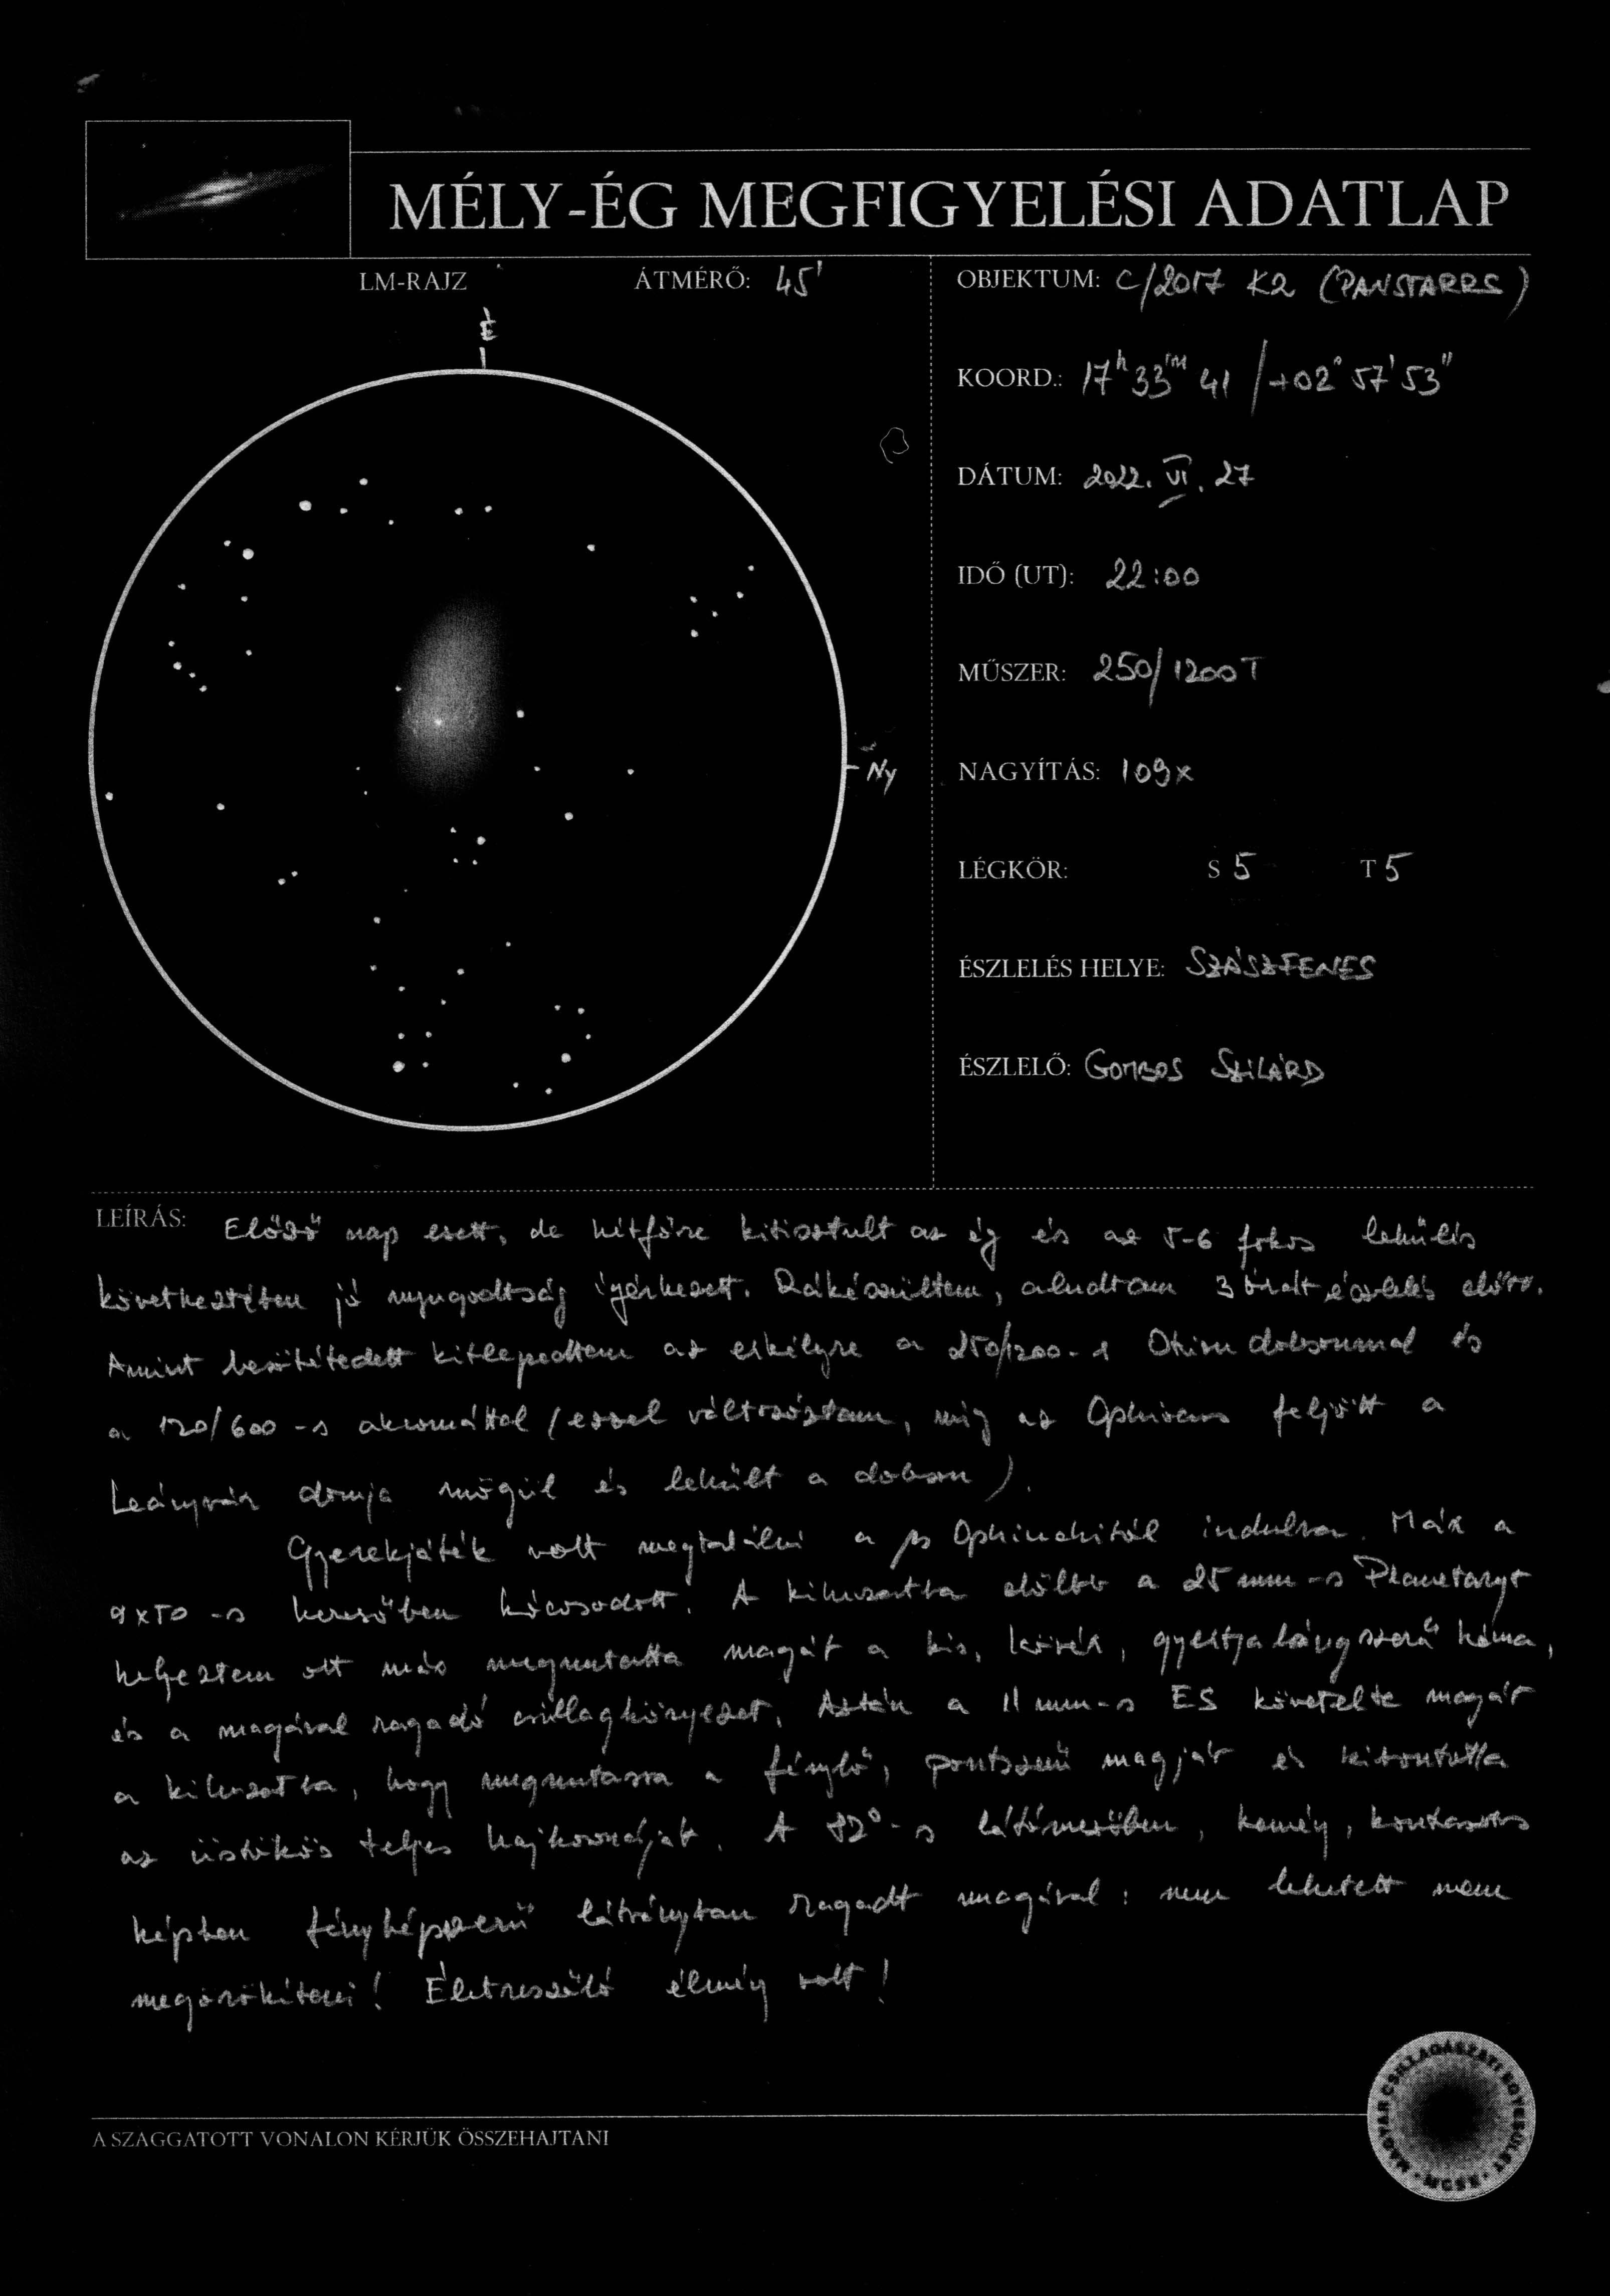 MÉLY-ÉG MEGFIGYELÉSI ADATLAP
LM-RAJZ ÁTMÉRŐ: 45'
É
Ny
OBJEKTUM: C/2017 K2 (PANSTARRS)
KOORD.: 17h 33m 41 / +02° 57' 53"
DÁTUM: 2022. VI. 27
IDŐ (UT): 22:00
MŰSZER: 250/1200 T
NAGYÍTÁS: 109x
LÉGKÖR: S 5 T 5
ÉSZLELÉS HELYE: SZÁSZFENES
ÉSZLELŐ: GOMBOS SZILÁRD
LEÍRÁS: Előző nap esett, de hétfőre kitisztult az ég és az 5-6 fokos lehülés
következtében jó nyugodtság ígérkezett. Rákészültem, aludtam 3 órát észlelés előtt.
Amint besötétedett kitelepedtem az erkélyre a 250/1200-s Orion dobsonnal és
a 120/600-s akromáttal (ezzel változóztam, míg az feljött a
Leányvár dombja mögül és lehült a dobson).
Gyerekjáték volt megtalálni a β Ophiuchitól indulva. Már a
9x50-s keresőben kócosodott. A kihuzatba előbb a 25 mm-s Planetaryt
helyeztem ott már megmutatta magát a kis, kövér, gyertyalángszerű kóma,
és a magával ragadó csillagkörnyezet. Aztán a 11 mm-s ES követelte magát
a kihuzatba, hogy megmutassa a fénylő, pontszerű magját és kibontotta
az üstökös teljes hajkoronáját. A 82°-s látómezőben, kemény, kontrasztos
képben fényképszerű látványban ragadt magával: nem lehetett nem
megörökíteni! Életreszóló élmény volt!
A SZAGGATOTT VONALON KÉRJÜK ÖSSZEHAJTANI
MAGYAR CSILLAGÁSZATI EGYESÜLET • MCSE •